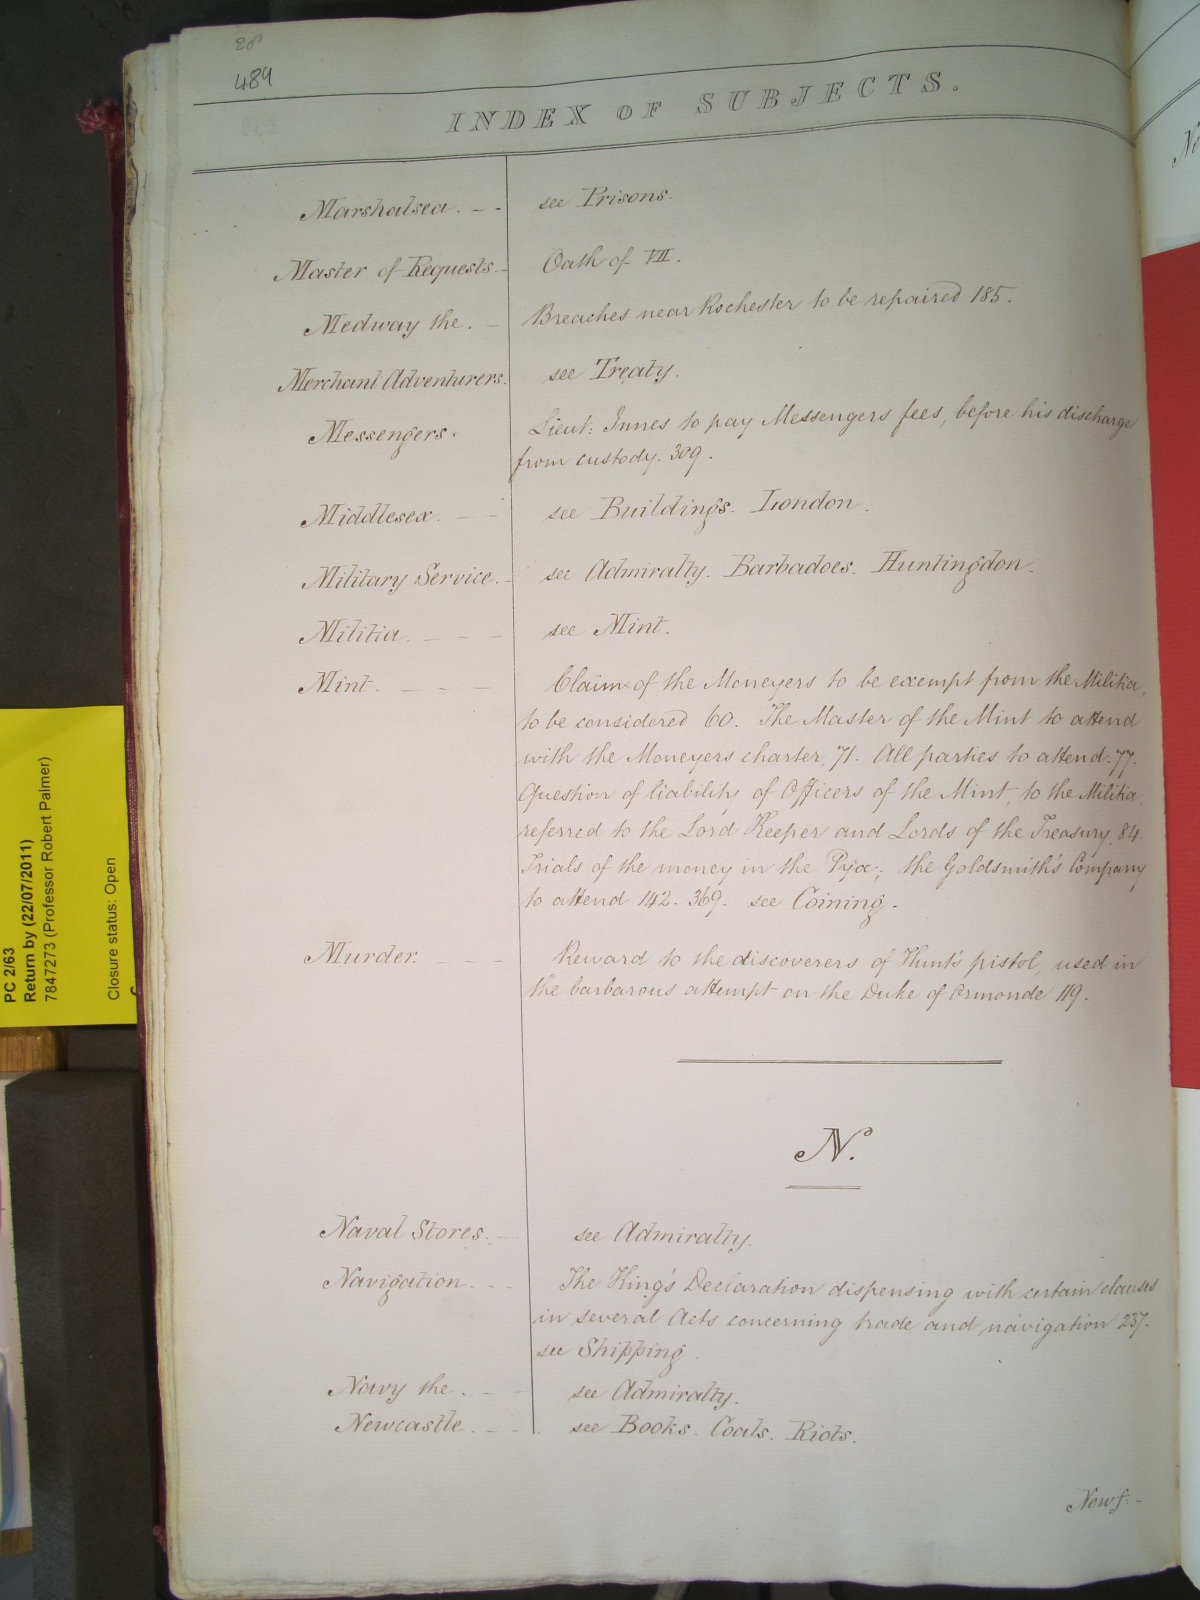 28
489
INDEX OF SUBJECTS.
Marshalsea. - - see Prisons.
Master of Requests. - Oath of VII.
Medway the. - Breaches near Rochester to be repaired 185.
Merchant Adventurers. see Treaty.
Messengers. Lieut: Innes to pay Messengers fees, before his discharge
from custody. 309.
Middlesex. - - see Buildings. London.
Military Service. - see Admiralty. Barbadoes. Huntingdon.
Militia. - - - see Mint.
Mint. - - - Claim of the Moneyers to be exempt from the Militia,
to be considered 60. The Master of the Mint to attend
with the Moneyers charter, 71. All parties to attend. 77.
Question of liability of Officers of the Mint, to the Militia,
referred to the Lord Keeper and Lords of the Treasury, 84.
Trials of the money in the Pyx; the Goldsmith's Company
to attend 142. 369. see Coining.
Murder. - - - Reward to the discoverers of Hunt's pistol, used in
the barbarous attempt on the Duke of Ormonde 119.
N.
Naval Stores. - see Admiralty.
Navigation. - - The King's Declaration dispensing with certain clauses
in several Acts concerning trade and navigation 237.
see Shipping.
Navy the. - - see Admiralty.
Newcastle. - - see Books. Coals. Riots.
Newf:-
PC 2/63
Return by (22/07/2011)
7847273 (Professor Robert Palmer)
Closure status: Open